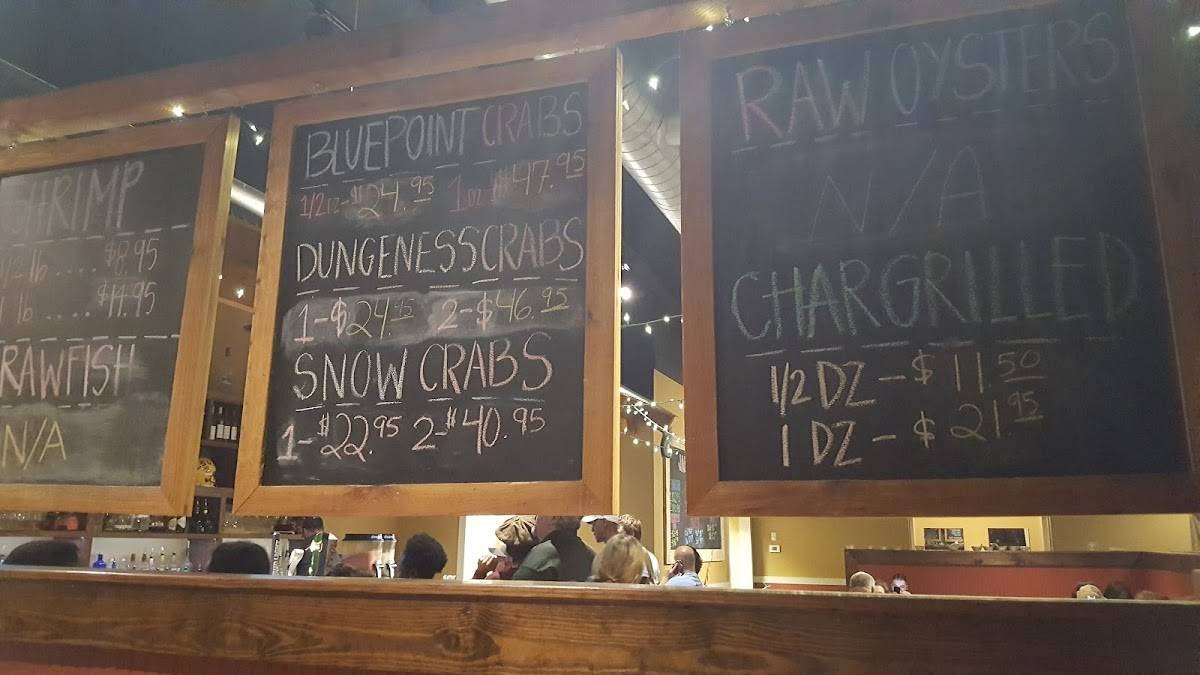 SHRIMP
1/2 lb .... $8.95
1 lb .... $14.95
CRAWFISH
N/A
BLUEPOINT CRABS
1/2 DZ - $24.95 1 DZ $47.95
DUNGENESS CRABS
1 - $24.95 2 - $46.95
SNOW CRABS
1 - $22.95 2 - $40.95
RAW OYSTERS
N/A
CHARGRILLED
1/2 DZ - $11.50
1 DZ - $21.95